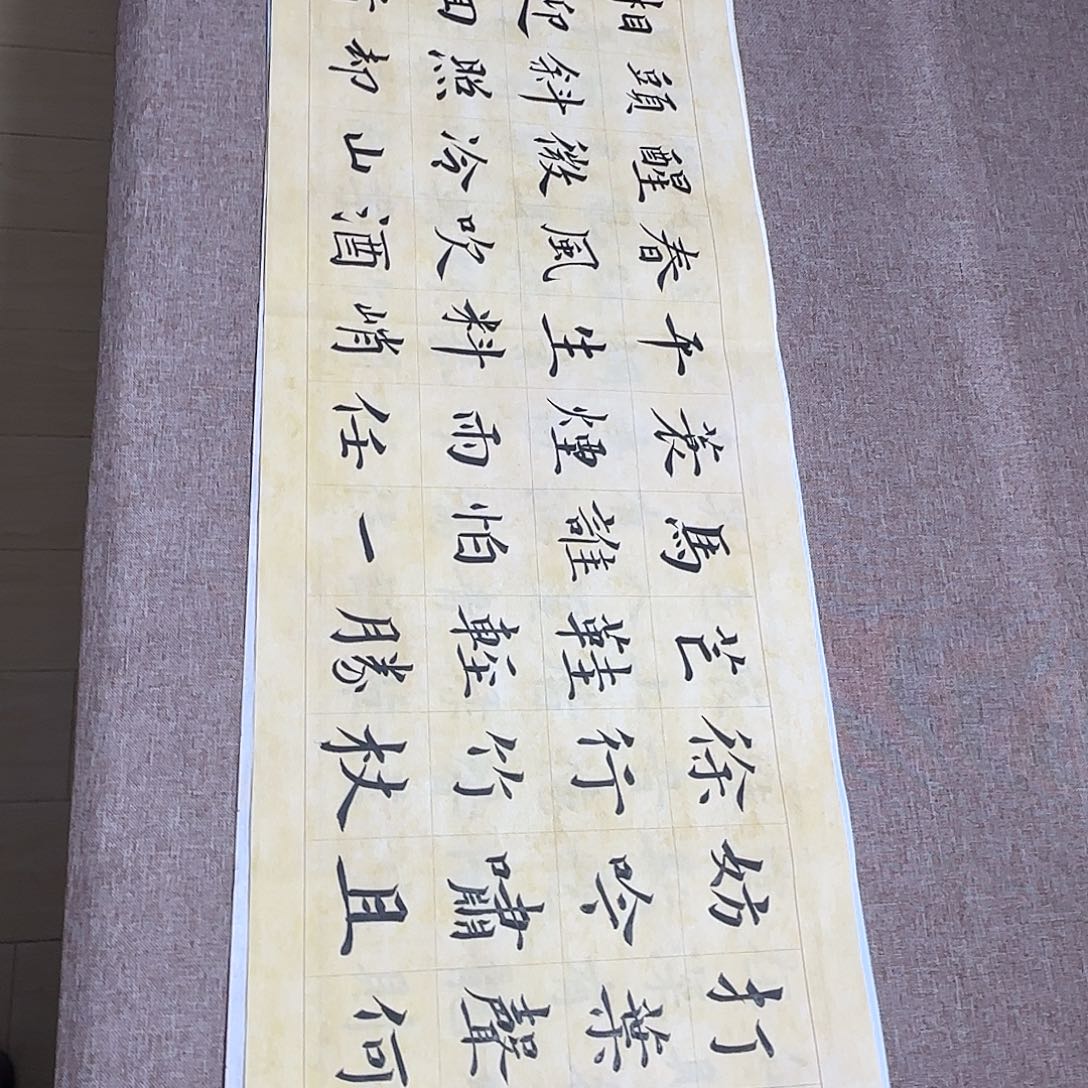 打葉聲何
妨吟嘯且
徐行竹杖
芒鞋輕勝
馬誰怕一
蓑煙雨任
平生料峭
春風吹酒
醒微冷山
頭斜照却
相迎回